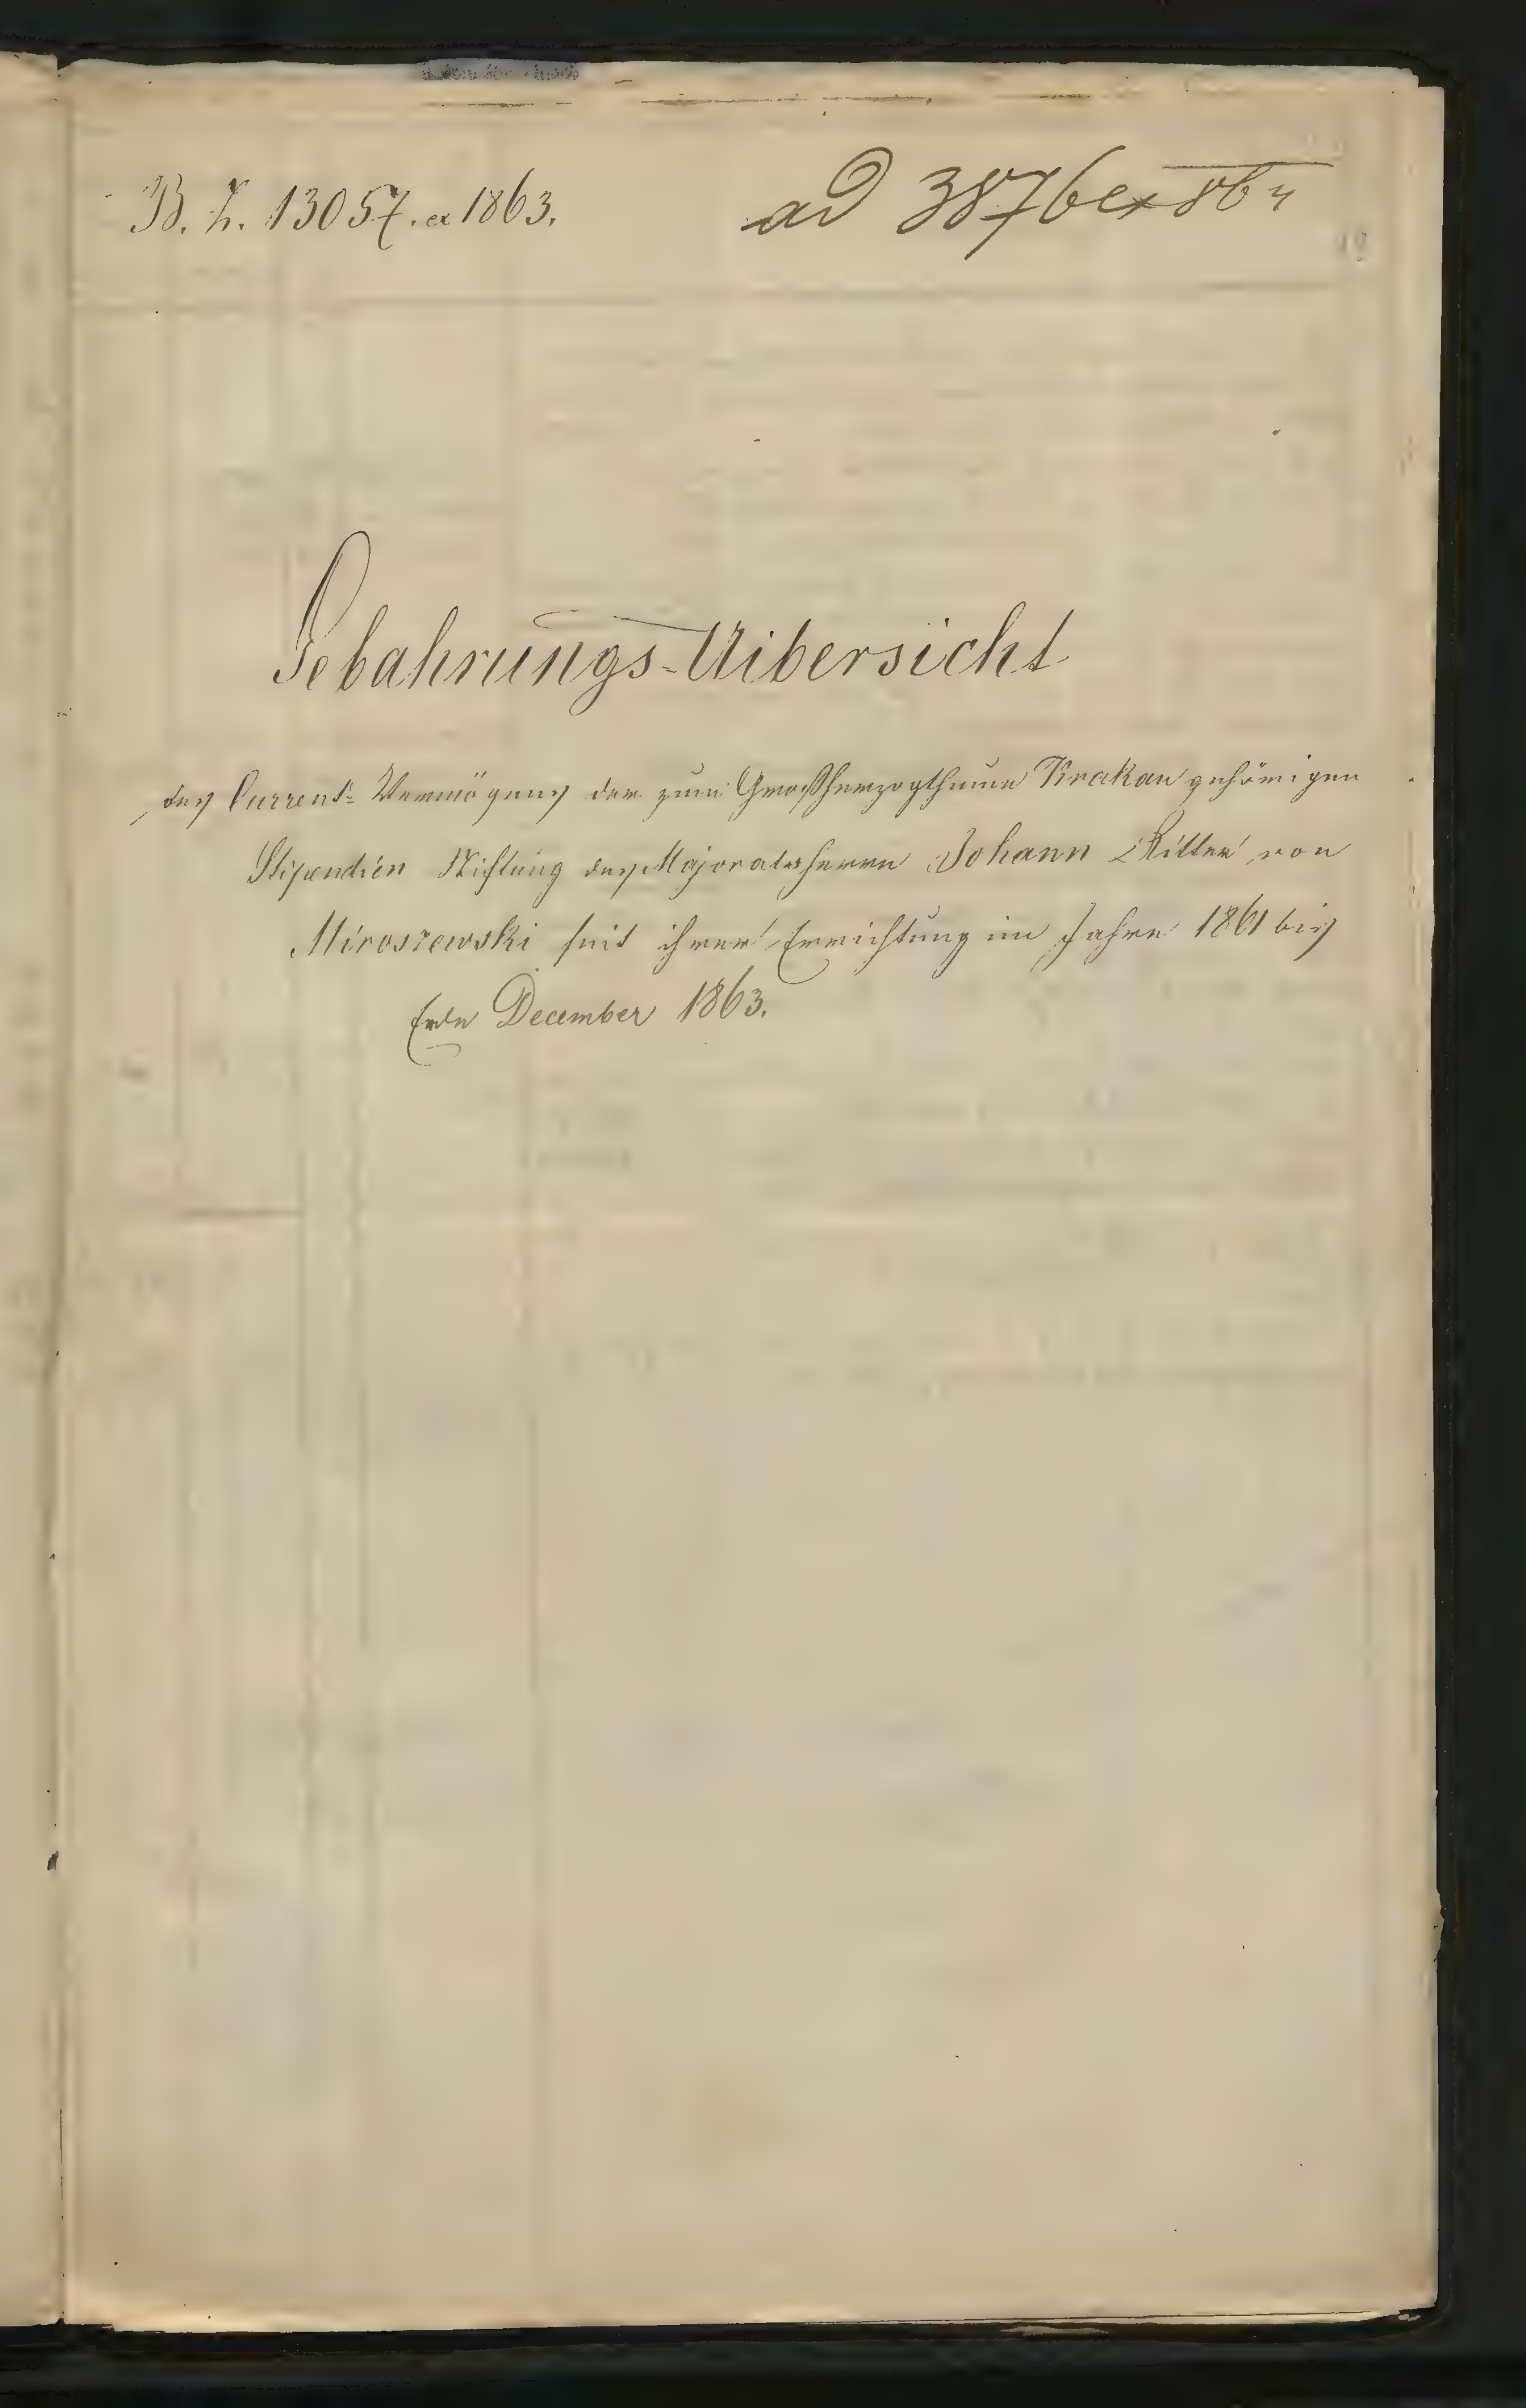 B. Z. 13057. ex 1863.
ad 3876 ex 864
Gebahrungs-Uibersicht
des Current-Vermögens der zum Großherzogthume Krakau gehörigen
Stipendien Stiftung des Majoratsherrn Johann Ritter von
Miroszewski seit ihrer Errichtung im Jahre 1861 bis
Ende December 1863.